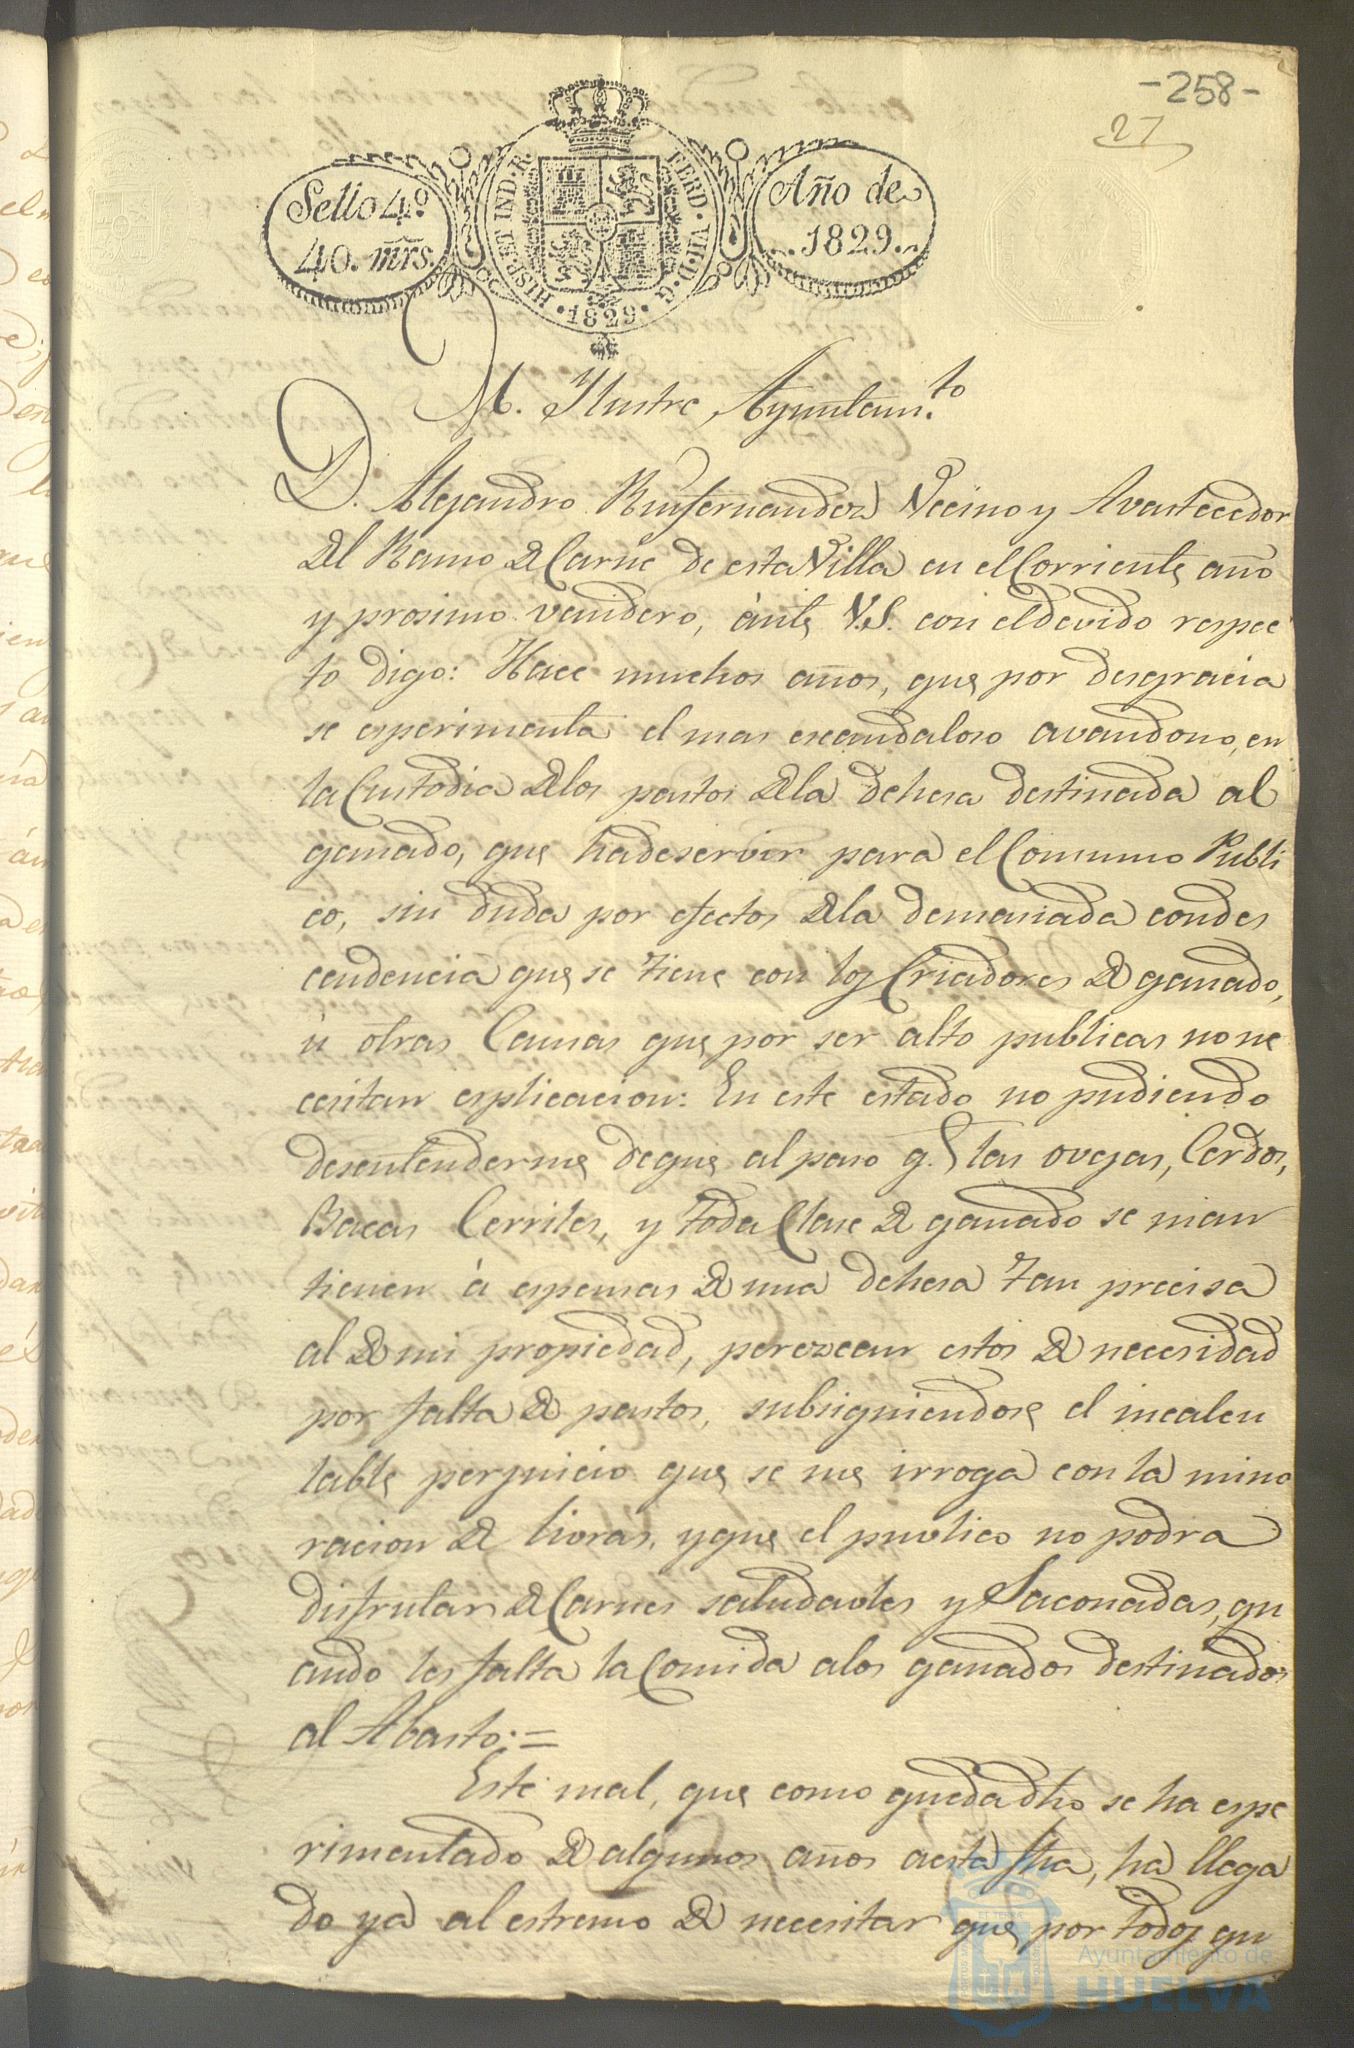 -258-
27
Sello 4º
40. mrs.
HISP. ET IND. R.
FERD. VII. D. G.
·1829·
Año de
1829.
M. Ilustre Ayuntam.to
D. Alejandro Ruifernandez Vecino y Avastecedor
del Ramo de Carne de esta Villa en el Corriente año
y prosimo venidero, ànte V.S. con el devido respec
to digo: Hace muchos años, que por desgracia
se esperimenta el mas escandaloso avandono, en
la Custodia de los pastos de la dehesa destinada al
ganado, que ha de servir para el Comumo Publi
co, sin duda por efectos de la demasiada condes
cendencia que se tiene con los Criadores de ganado,
ù otras Causas que por ser alto publicas no ne
cesitan esplicacion: En este estado no pudiendo
desentenderme de que al paso q. las ovejas, Cerdos,
Bacas Cerriles, y toda Clase de ganado se man
tienen à espensas de una dehesa tan precisa
al de mi propiedad, perezcan estos de necesidad
por falta de pastos, subsiguiendose el incalcu
lable perjuicio que se me irroga con la mino
racion de livras, y que el publico no podra
disfrutar de Carnes saludavles y Saconadas, qu
ando les falta la Comida a los ganados destinados
al Abasto: =
Este mal, que como queda dho se ha espe
rimentado de algunos años a esta fha, ha llega
do ya al estremo de necesitar que por todos qu
Ayuntamiento de
HUELVA